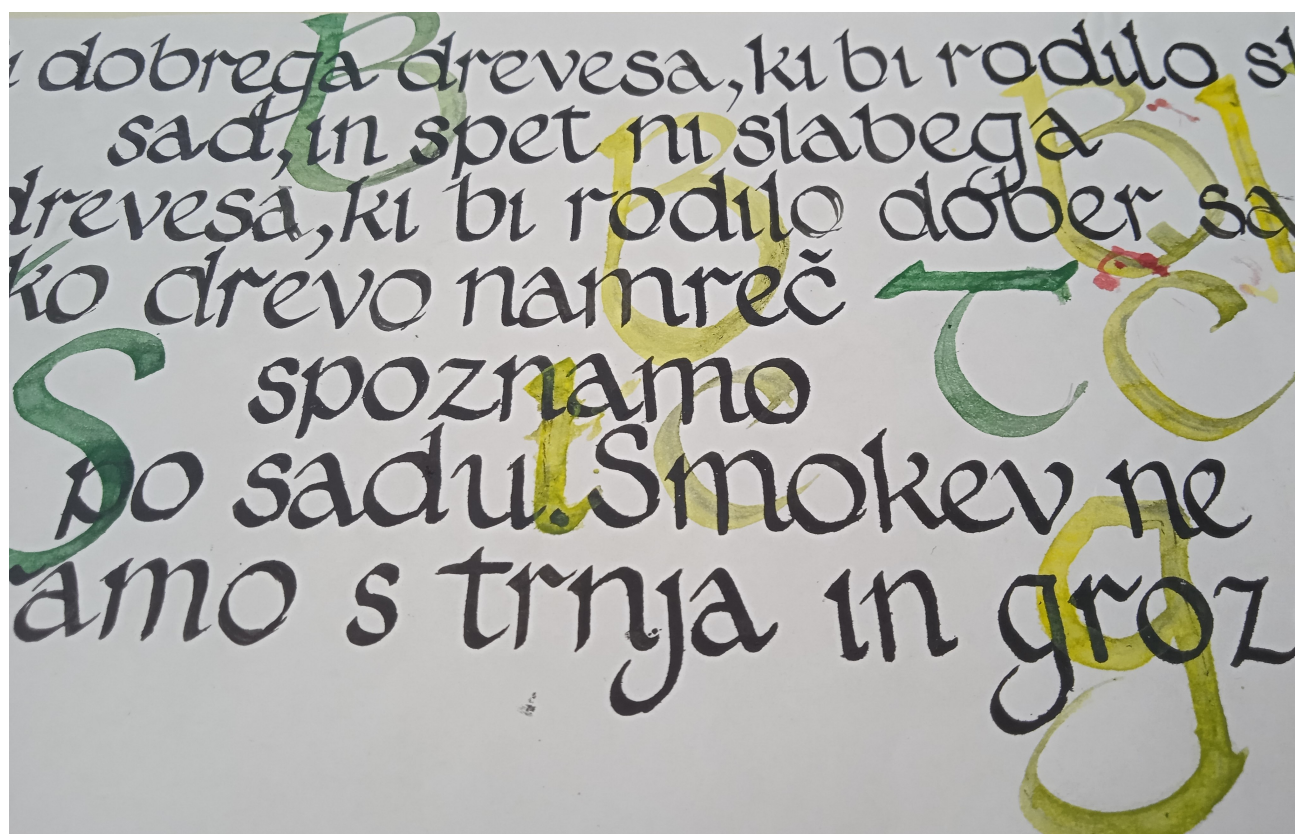 i dobrega drevesa, ki bi rodilo sl
sad, in spet ni slabega
drevesa, ki bi rodilo dober sa
ko drevo namreč
spoznamo
po sadu. Smokev ne
ramo s trnja in groz
B
B
B
l
T
C
S
t
C
g